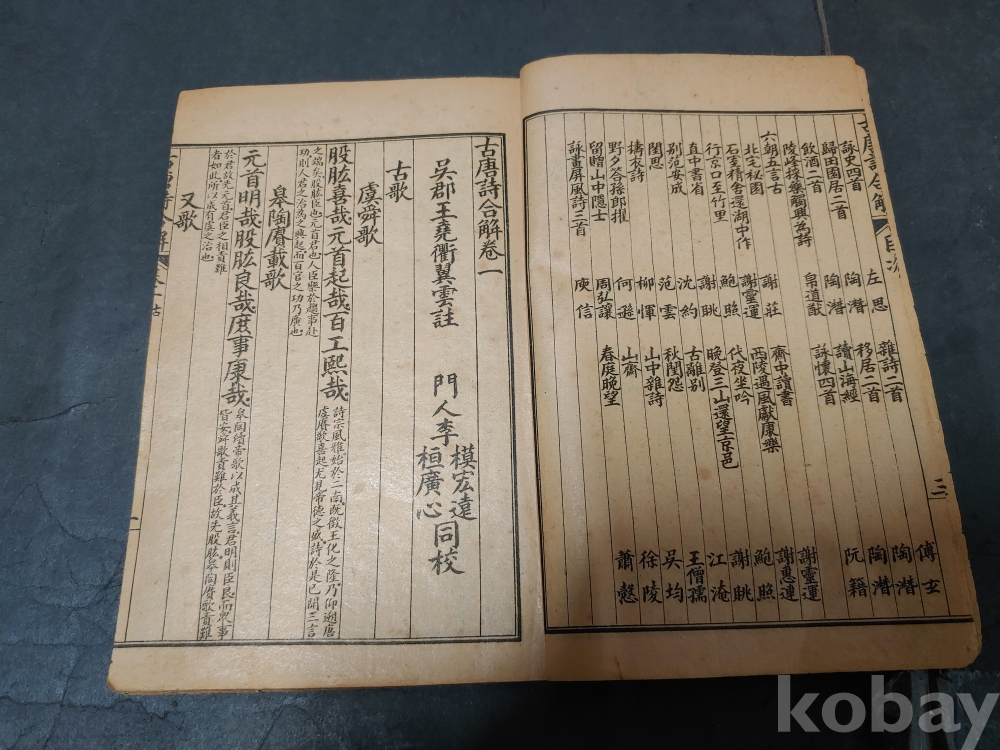 古唐詩合解 目次 三
詠史四首 左思 雜詩二首 傅玄
歸田園居二首 陶潛 移居二首 陶潛
飲酒二首 陶潛 讀山海經 陶潛
陵峰採藥觸興為詩 帛道猷 詠懷四首 阮籍
六朝五言古
北宅秘園 謝莊 齋中讀書 謝靈運
石壁精舍還湖中作 謝靈運 西陵遇風獻康樂 謝惠連
行京口至竹里 鮑照 代夜坐吟 鮑照
直中書省 謝眺 晚登三山還望京邑 謝眺
別范安成 沈約 古離別 江淹
閨思 范雲 秋閨怨 王僧孺
擣衣詩 柳惲 山中雜詩 吳均
野夕答孫郎擢 何遜 山齋 徐陵
留贈山中隱士 周弘讓 春庭晚望 蕭慤
詠畫屏風詩三首 庾信
古唐詩合解卷一
吳郡王堯衢翼雲註 門人李模宏遠桓廣心同校
古歌
虞舜歌
股肱喜哉元首起哉百工熙哉 詩宗風雅始於二南既徵王化之隆乃仰溯唐
虞賡歌喜起尤見帝德之盛詩於是已開三言
之端矣股肱臣也元首君也人臣樂於趨事赴
功則人君之治為之興起而百官之功乃廣也
皋陶賡載歌
元首明哉股肱良哉庶事康哉 皋陶續帝歌以成其義言君明則臣良而眾事
皆安舜歌責難於臣故先股肱皋陶賡歌責難
於君故先元首君臣之相責難
者如此所以成有虞之治也
又歌